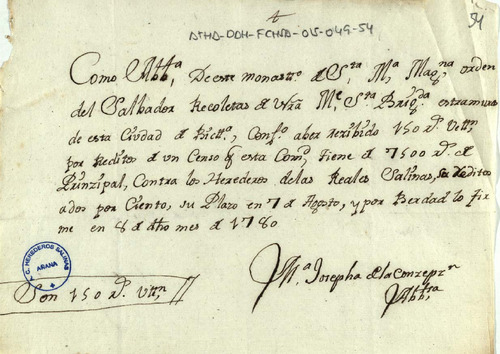 ATHA-DDH-FCHSA-015-049-54
54
Como Abb.ª, De este monast.º d S.ta M.ª Mag.na orden
del Salbador Recoletas d Nrã M.e S.ta Brig.da extramuros
de esta Ciudad d Vict.ª, Conf.º aber rezibido 150 r.s Vell.n
por Reditos d un Censo q esta Com.d tiene d 7500 r.s d
Prinzipal, Contra los Herederos de las Reales Salinas, su Reditos
ados por Ciento, su Plazo en 7 d Agosto, y por Berdad lo fir
me en 8 d dho mes d 1780
M.ª Josepha d la Conzepz.n
Abb.sa
Son 150 r.s Vell.n
C. HEREDEROS SALINAS
ARANA